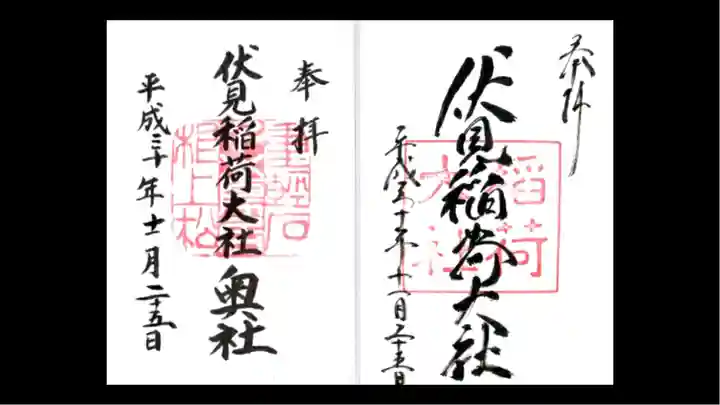 奉拝
伏見稲荷大社
平成三十年十一月二十五日
稲荷
大社
奉拝
伏見稲荷大社奥社
平成三十年十一月二十五日